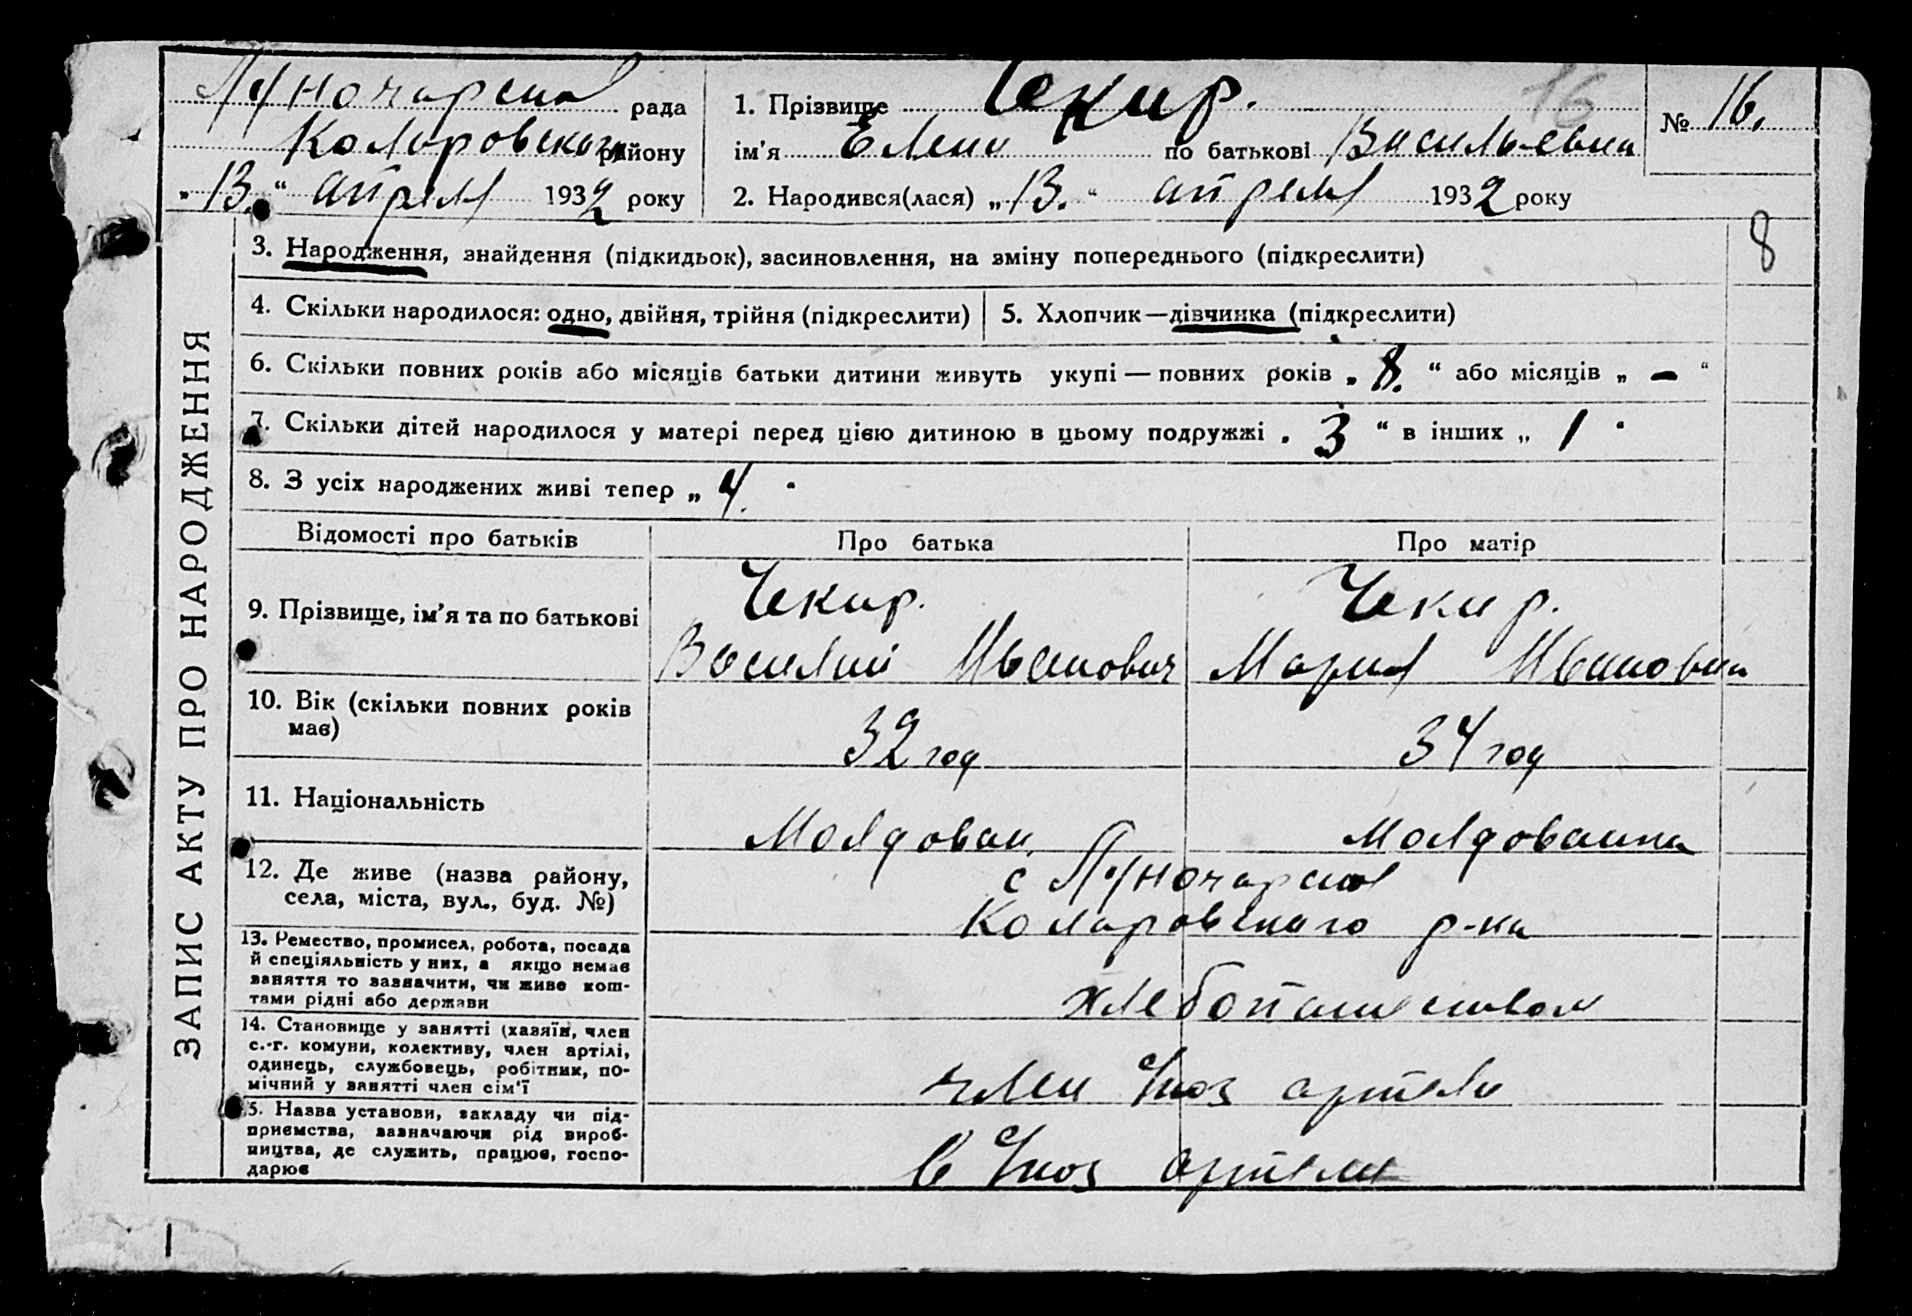 Луночарская рада
Коларовского району
„13.“ апреля 1932 року
1. Прізвище Чекир.
16
№ 16.
ім'я Елена по батькові Васильевна
2. Народився(лася) „13.“ апреля 1932 року
8
ЗАПИС АКТУ ПРО НАРОДЖЕННЯ
3. Народження, знайдення (підкидьок), засиновлення, на зміну попереднього (підкреслити)
4. Скільки народилося: одно, двійня, трійня (підкреслити)
5. Хлопчик—дівчинка (підкреслити)
6. Скільки повних років або місяців батьки дитини живуть укупі — повних років „8.“ або місяців „—“
7. Скільки дітей народилося у матері перед цією дитиною в цьому подружжі „3“ в інших „1“
8. З усіх народжених живі тепер „4.“
Відомості про батьків
Про батька
Про матір
9. Прізвище, ім'я та по батькові
Чекир.
Василий Иванович
Чекир.
Мария Ивановна
10. Вік (скільки повних років
має)
32 год
34 год
11. Національність
Молдован.
Молдованка
12. Де живе (назва району,
села, міста, вул., буд. №)
с Луночарска
Коларовского р-на
13. Ремество, промисел, робота, посада
й спеціяльність у них, а якщо немає
заняття то зазначити, чи живе кош-
тами рідні або держави
хлебопашеством
14. Становище у занятті (хазяїн, член
с.-г. комуни, колективу, член артілі,
одинець, службовець, робітник, по-
мічний у занятті член сім'ї
член артели
15. Назва установи, закладу чи під-
приємства, зазначаючи рід вироб-
ництва, де служить, працює, госпо-
дарює
в артели